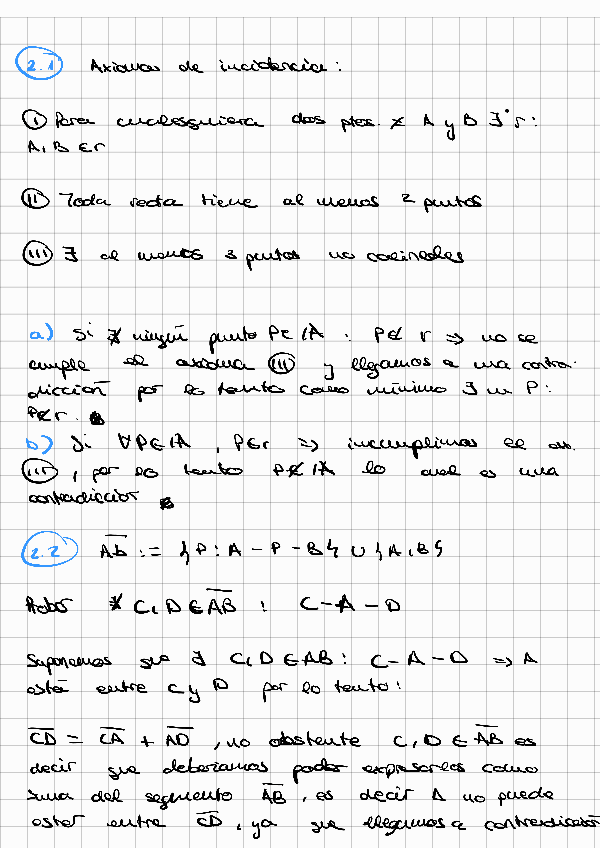 2.1 Axiomas de incidencia :
(i) Para cualesquiera dos ptos. ≠ A y B ∃• r :
A, B ∈ r
(ii) Toda recta tiene al menos 2 puntos
(iii) ∃ al menos 3 puntos no colineales
a) Si ∄ ningún punto P ∈ /A : P ∉ r ⇒ no se
cumple el axioma (iii) y llegamos a una contra-
dicción por lo tanto como mínimo ∃ un P :
P ∉ r.
b) Si ∀P ∈ /A , P ∈ r ⇒ incumplimos el ax.
(iii) , por lo tanto P ∉ /A lo cual es una
contradicción
2.2 Ab := { P : A - P - B } ∪ { A , B }
Probar ∄ C, D ∈ AB : C - A - D
Suponemos que ∃ C, D ∈ AB : C - A - D ⇒ A
está entre C y D por lo tanto :
CD = CA + AD , no obstante C, D ∈ AB es
decir que deberíamos poder expresarlos como
suma del segmento AB , es decir A no puede
estar entre CD , ya que llegamos a contradicción